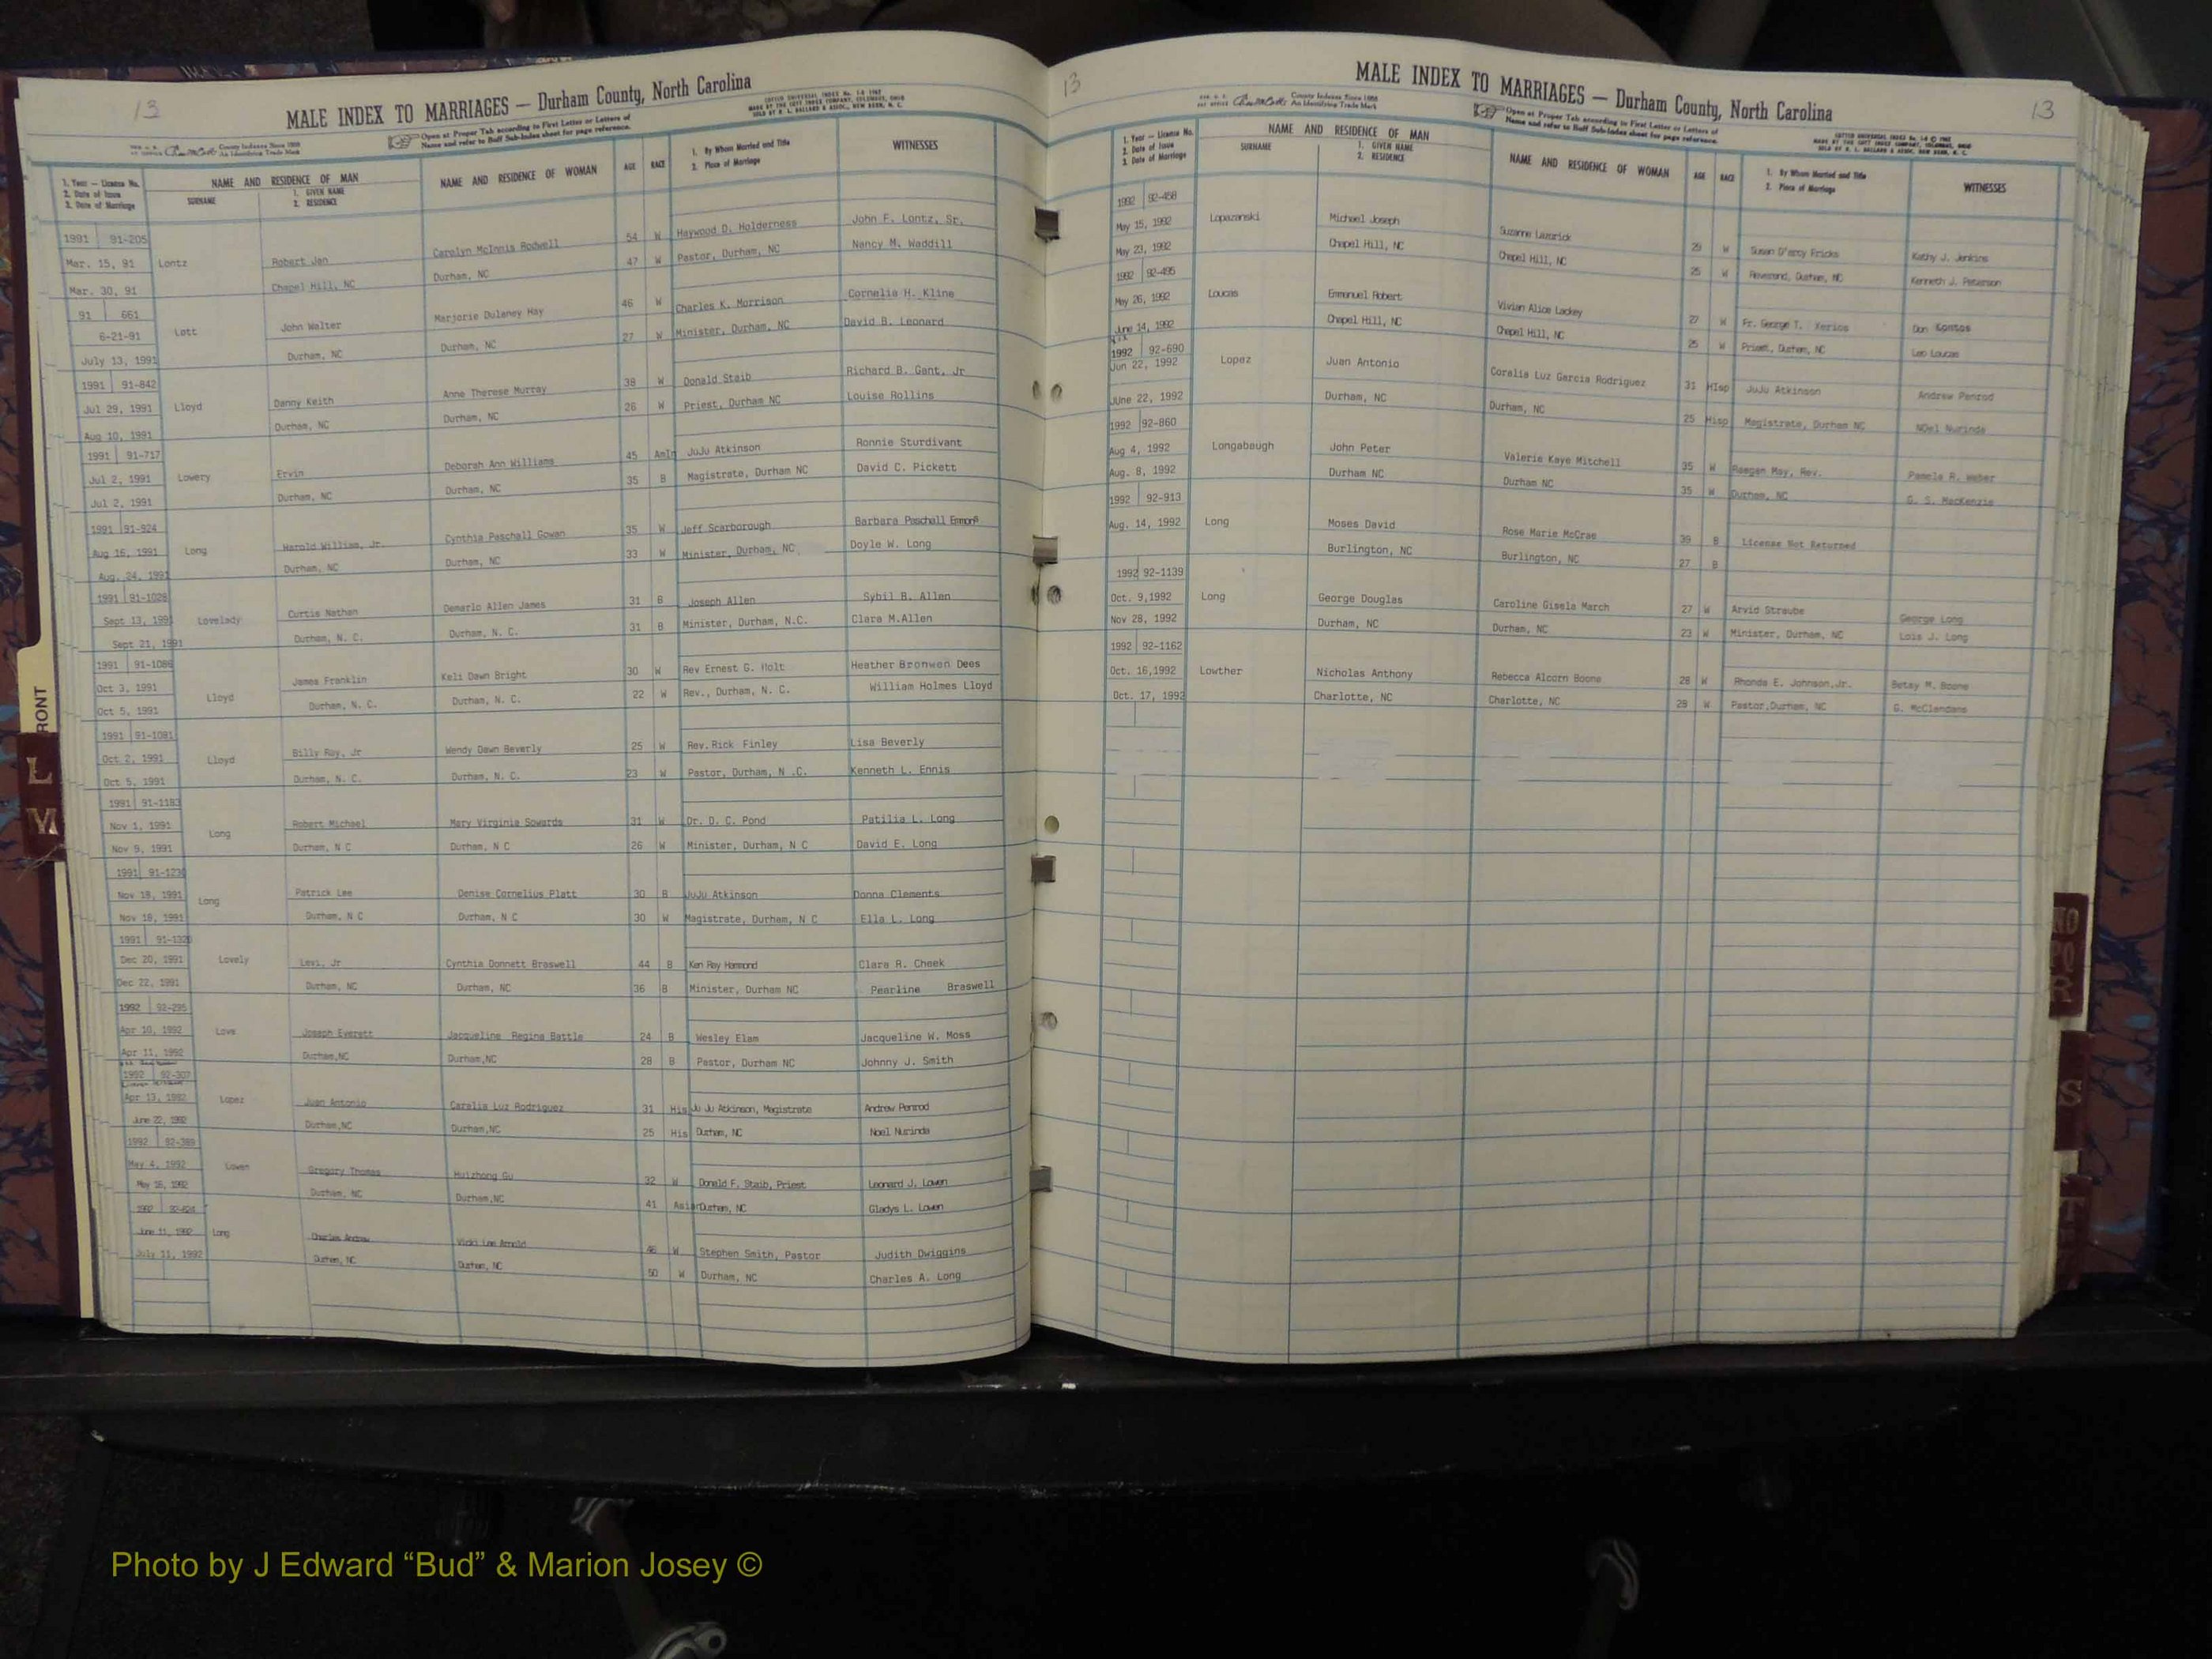 13
MALE INDEX TO MARRIAGES — Durham County, North Carolina
County Indexes Since 1888
An Identifying Trade Mark
Open at Proper Tab according to First Letter or Letters of
Name and refer to Buff Sub-Index sheet for page reference.
1. Year — License No.
2. Date of Issue
3. Date of Marriage
NAME AND RESIDENCE OF MAN
SURNAME
1. GIVEN NAME
2. RESIDENCE
NAME AND RESIDENCE OF WOMAN
AGE
RACE
1. By Whom Married and Title
2. Place of Marriage
WITNESSES
1991 91-205 Carolyn McInnis Rodwell 54 W Haywood D. Holderness John F. Lontz, Sr.
Mar. 15, 91 Lontz Robert Jan Durham, NC 47 W Pastor, Durham, NC Nancy M. Waddill
Mar. 30, 91 Chapel Hill, NC
91 661 John Walter Marjorie Dulaney Hay 46 W Charles K. Morrison Cornelia H. Kline
6-21-91 Lott Durham, NC Durham, NC 27 W Minister, Durham, NC David B. Leonard
July 13, 1991
1991 91-842 Danny Keith Anne Therese Murray 38 W Donald Staib Richard B. Gant, Jr
Jul 29, 1991 Lloyd Durham, NC Durham, NC 26 W Priest, Durham NC Louise Rollins
Aug 10, 1991
1991 91-717 Ervin Deborah Ann Williams 45 AmIn JuJu Atkinson Ronnie Sturdivant
Jul 2, 1991 Lowery Durham, NC Durham, NC 35 B Magistrate, Durham NC David C. Pickett
Jul 2, 1991
1991 91-924 Harold William, Jr. Cynthia Paschall Gowan 35 W Jeff Scarborough Barbara Paschall
Aug 16, 1991 Long Durham, NC Durham, NC 33 W Minister, Durham, NC Doyle W. Long
Aug. 24, 1991
1991 91-1028 Curtis Nathan Demarlo Allen James 31 B Joseph Allen Sybil B. Allen
Sept 13, 1991 Lovelady Durham, N. C. Durham, N. C. 31 B Minister, Durham, N.C. Clara M.Allen
Sept 21, 1991
1991 91-1086 James Franklin Keli Dawn Bright 30 W Rev Ernest G. Holt Heather Bronwen Dees
Oct 3, 1991 Lloyd Durham, N. C. Durham, N. C. 22 W Rev., Durham, N. C. William Holmes Lloyd
Oct 5, 1991
1991 91-1081 Billy Ray, Jr Wendy Dawn Beverly 25 W Rev.Rick Finley Lisa Beverly
Oct 2, 1991 Lloyd Durham, N. C. Durham, N. C. 23 W Pastor, Durham, N .C. Kenneth L. Ennis
Oct 5, 1991
1991 91-1183 Robert Michael Mary Virginia Sowards 31 W Dr. D. C. Pond Patilia L. Long
Nov 1, 1991 Long Durham, N C Durham, N C 26 W Minister, Durham, N C David E. Long
Nov 9, 1991
1991 91-1230 Patrick Lee Denise Cornelius Platt 30 B JuJu Atkinson Donna Clements
Nov 18, 1991 Long Durham, N C Durham, N C 30 W Magistrate, Durham, N C Ella L. Long
Nov 18, 1991
1991 91-1320 Levi, Jr Cynthia Donnett Braswell 44 B Ken Ray Hammond Clara R. Cheek
Dec 20, 1991 Lovely Durham, NC Durham, NC 36 B Minister, Durham NC Pearline Braswell
Dec 22, 1991
1992 92-295 Joseph Everett Jacqueline Regina Battle 24 B Wesley Elam Jacqueline W. Moss
Apr 10, 1992 Love Durham,NC Durham,NC 28 B Pastor, Durham NC Johnny J. Smith
Apr 11, 1992
1992 92-307 Juan Antonio Caralia Luz Rodriguez 31 His Ju Ju Atkinson, Magistrate Andrew Penrod
Apr 13, 1992 Lopez Durham,NC Durham,NC 25 His Durham, NC Noel Nurinda
June 22, 1992
1992 92-389 Gregory Thomas Huizhong Gu 32 W Donald F. Staib, Priest Leonard J. Lowen
May 4, 1992 Lowen Durham, NC Durham,NC 41 Asian Durham, NC Gladys L. Lowen
May 16, 1992
1992 92-624 Charles Andrew Vicki Lee Arnold 46 W Stephen Smith, Pastor Judith Dwiggins
June 11, 1992 Long Durham, NC Durham, NC 50 W Durham, NC Charles A. Long
July 11, 1992
13
MALE INDEX TO MARRIAGES — Durham County, North Carolina
13
County Indexes Since 1888
An Identifying Trade Mark
Open at Proper Tab according to First Letter or Letters of
Name and refer to Buff Sub-Index sheet for page reference.
1. Year — License No.
2. Date of Issue
3. Date of Marriage
NAME AND RESIDENCE OF MAN
SURNAME
1. GIVEN NAME
2. RESIDENCE
NAME AND RESIDENCE OF WOMAN
AGE
RACE
1. By Whom Married and Title
2. Place of Marriage
WITNESSES
1992 92-458
May 15, 1992 Lopazanski Michael Joseph Suzanne Lazarick 29 W Susan D'arcy Fricks Kathy J. Jenkins
May 23, 1992 Chapel Hill, NC Chapel Hill, NC 25 W Reverend, Durham, NC Kenneth J. Peterson
1992 92-495
May 26, 1992 Loucas Emmanuel Robert Vivian Alice Lackey 27 W Fr. George T. Xerios Don Kontos
June 14, 1992 Chapel Hill, NC Chapel Hill, NC 25 W Priest, Durham, NC Leo Loucas
1992 92-690
Jun 22, 1992 Lopez Juan Antonio Coralia Luz Garcia Rodriguez 31 HIsp JuJu Atkinson Andrew Penrod
June 22, 1992 Durham, NC Durham, NC 25 Hisp Magistrate, Durham NC NOel Nurinda
1992 92-860
Aug 4, 1992 Longabaugh John Peter Valerie Kaye Mitchell 35 W Raegan May, Rev. Pamela R. Weber
Aug. 8, 1992 Durham NC Durham NC 35 W Durham, NC G. S. MacKenzie
1992 92-913
Aug. 14, 1992 Long Moses David Rose Marie McCrae 39 B License Not Returned
Burlington, NC Burlington, NC 27 B
1992 92-1139
Oct. 9,1992 Long George Douglas Caroline Gisela March 27 W Arvid Straube George Long
Nov 28, 1992 Durham, NC Durham, NC 23 W Minister, Durham, NC Lois J. Long
1992 92-1162
Oct. 16,1992 Lowther Nicholas Anthony Rebecca Alcorn Boone 28 W Rhonda E. Johnson,Jr. Betsy M. Boone
Oct. 17, 1992 Charlotte, NC Charlotte, NC 29 W Pastor,Durham, NC G. McClendans
RONT
L
M
NO
PQ
R
S
T
Photo by J Edward “Bud” & Marion Josey ©